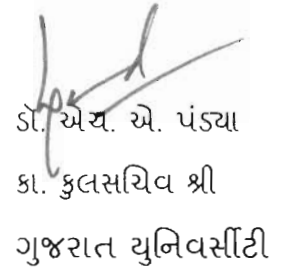 ડૉ. એચ. એ. પંડ્યા
કા. કુલસચિવ શ્રી
ગુજરાત યુનિવર્સીટી